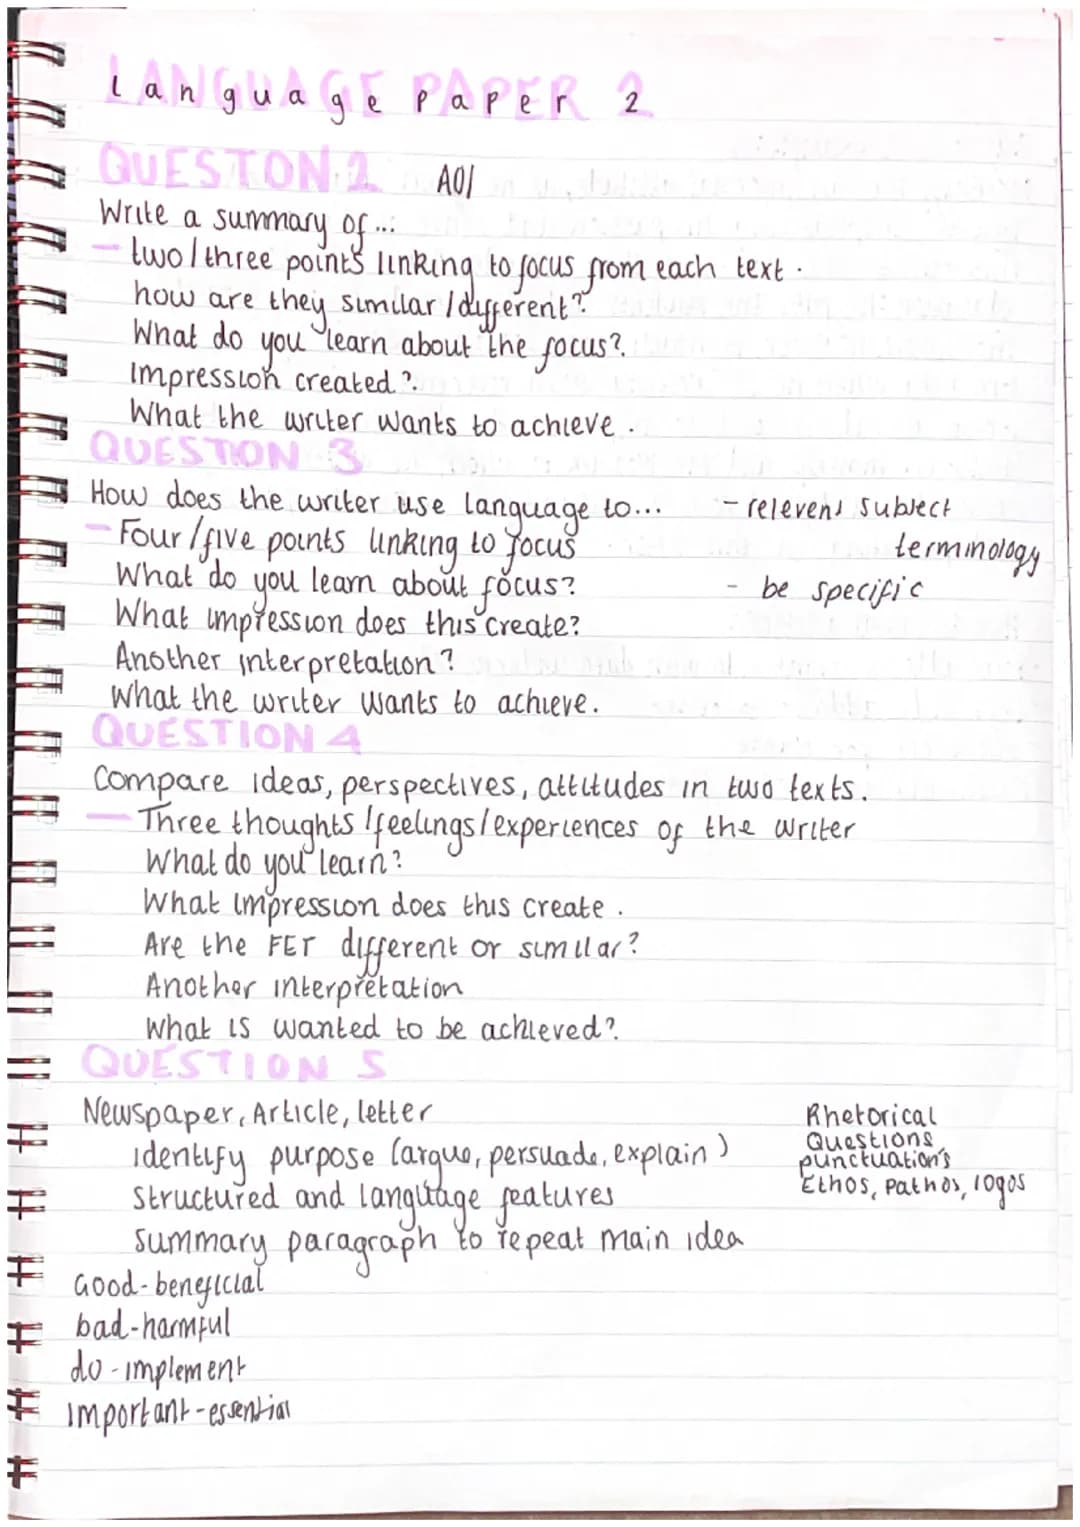 Language Paper 2
LANGUAGE PAPER 2
QUESTON 2 AO1
Write a summary of...
- two/three points linking to focus from each text.
how are they similar/different?
What do you learn about the focus?
Impression created?
What the writer wants to achieve.
QUESTION 3
How does the writer use language to...
- Four/five points linking to focus
What do you learn about focus?
What impression does this create?
Another interpretation?
What the writer wants to achieve.
- relevent subject
terminology
- be specific
QUESTION 4
Compare ideas, perspectives, attitudes in two texts.
- Three thoughts/feelings/experiences of the writer
What do you learn?
What impression does this create.
Are the FET different or similar?
Another interpretation
What is wanted to be achieved?
QUESTION 5
Newspaper, Article, letter
identify purpose (argue, persuade, explain)
Structured and language features
Summary paragraph to repeat main idea
Rhetorical
Questions
punctuation's
Ethos, Pathos, logos
Good-beneficial
bad-harmful
do-implement
important-essential